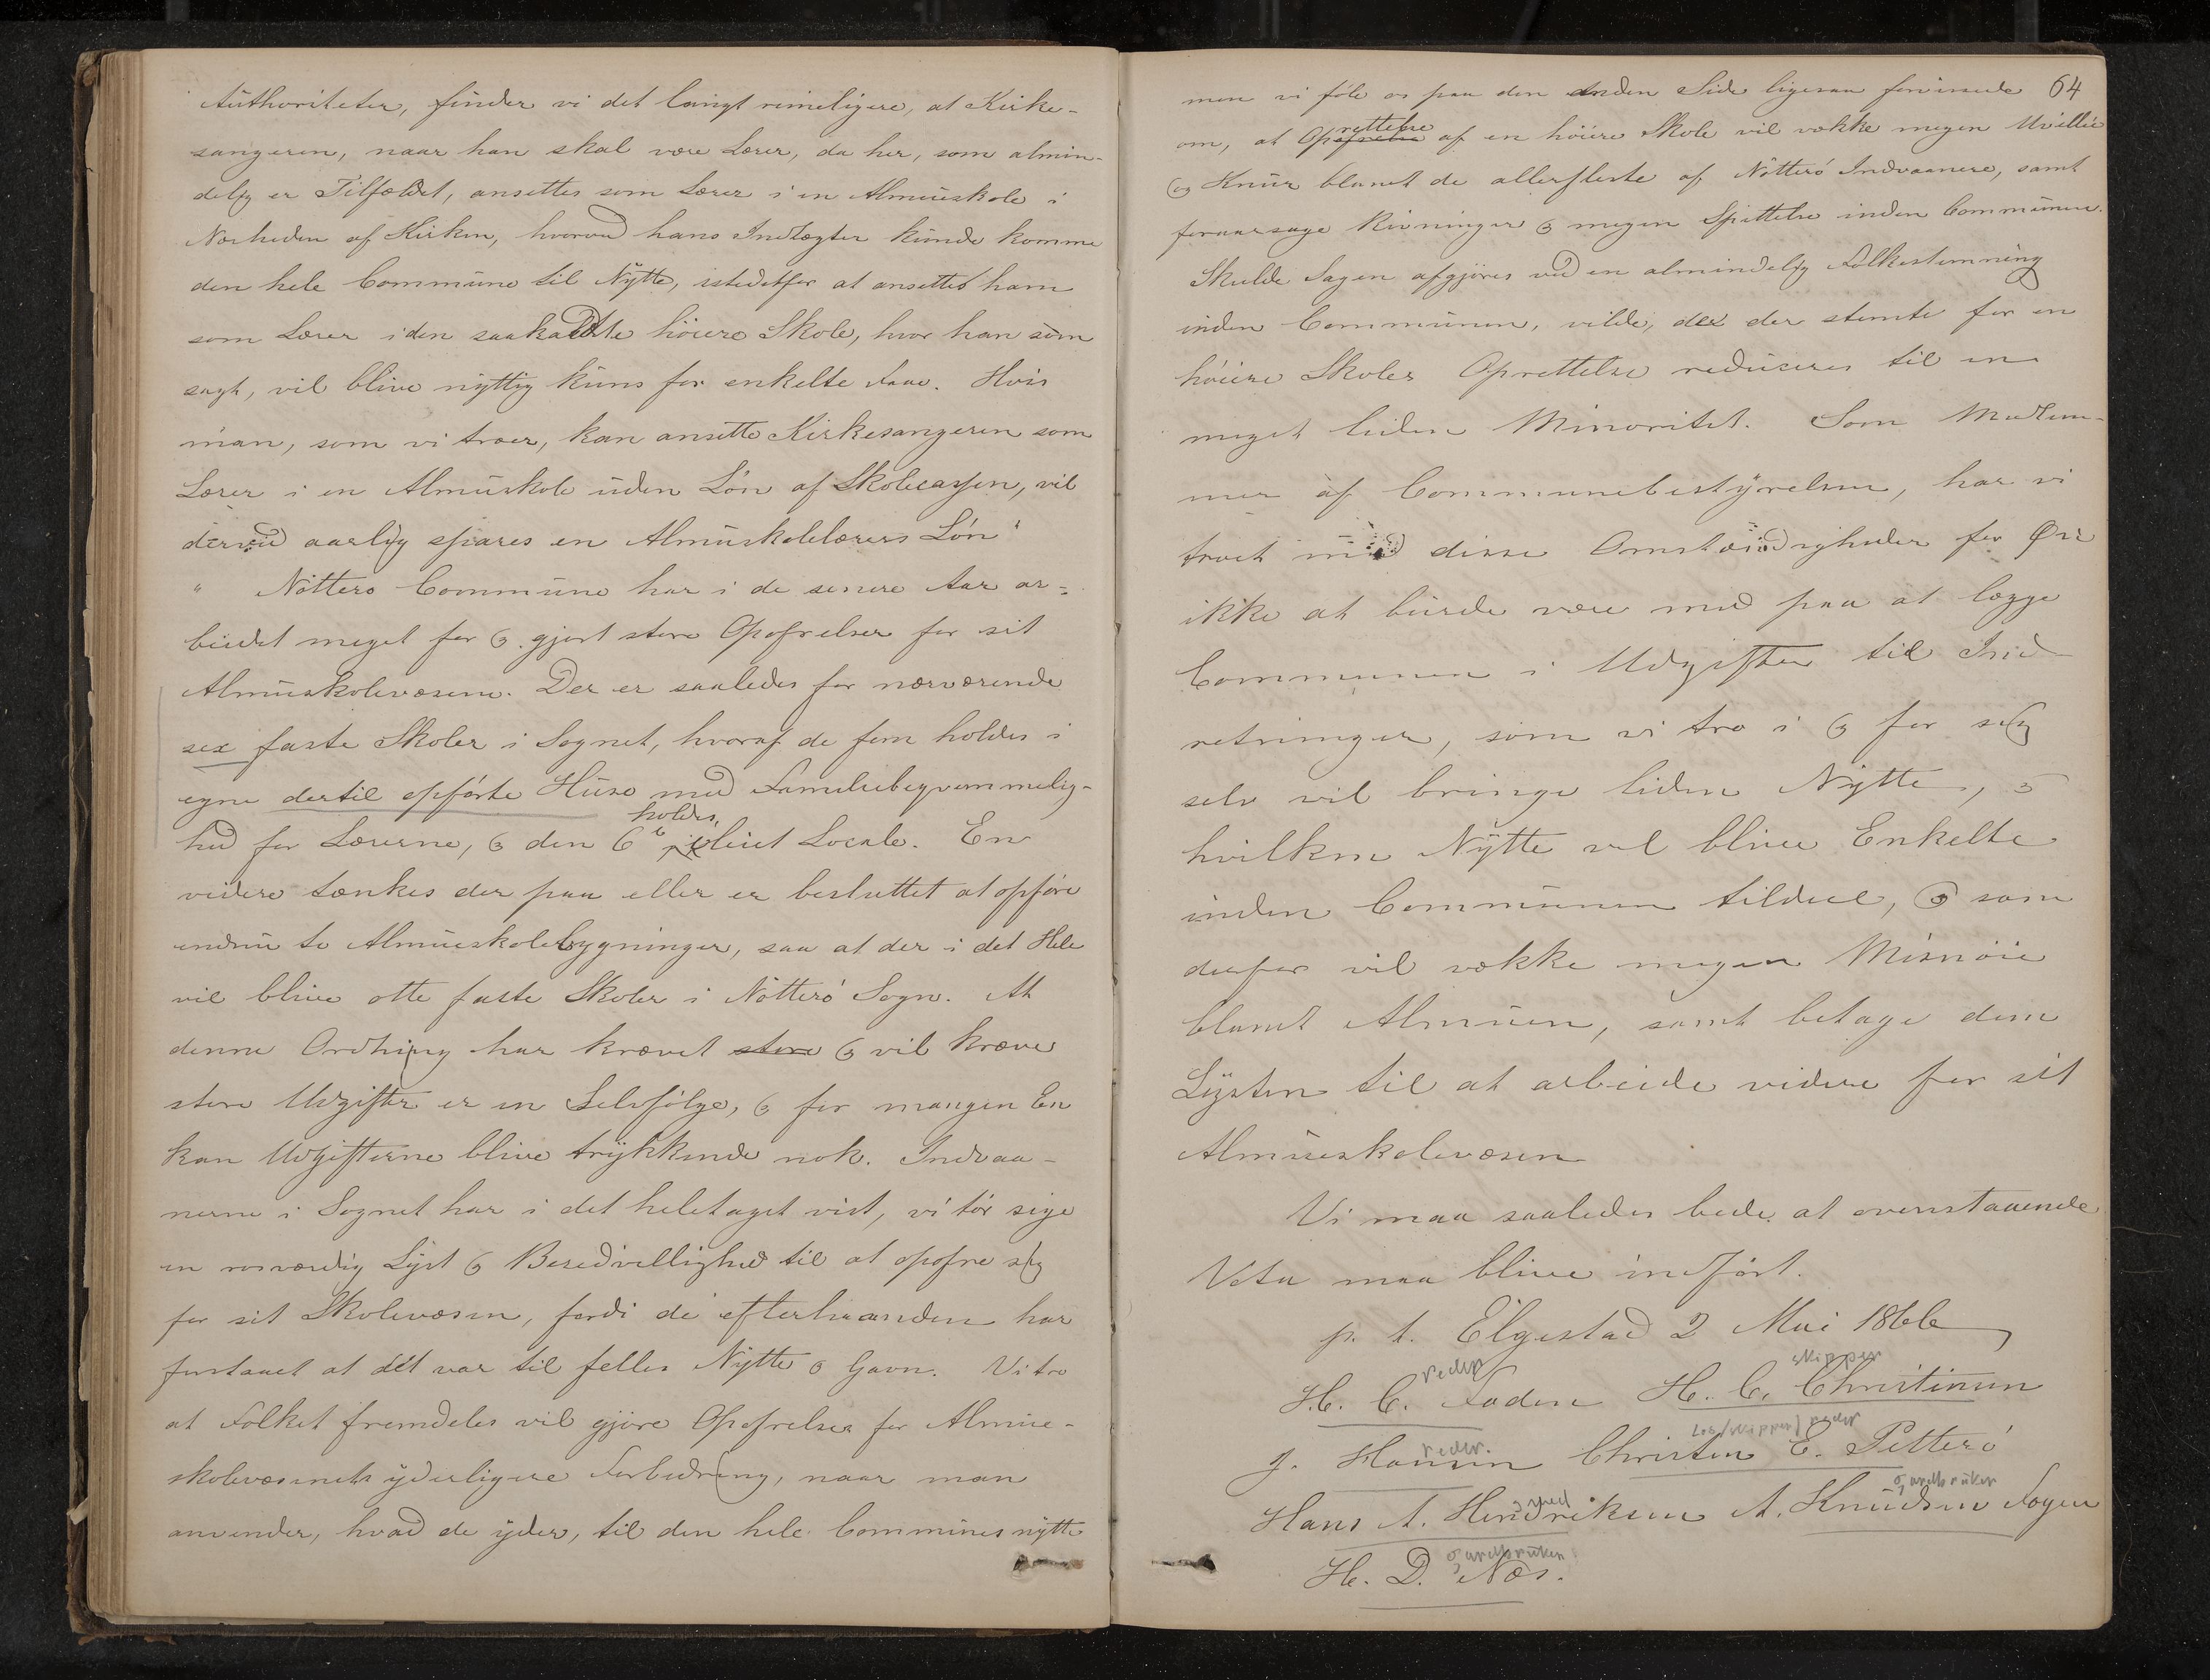 Authoriteter, finder vi det langt rimeligere, at Kirke-
sangeren, naar han skal være Lærer, da her, som almin-
delig er Tilfældet, ansettes som Lærer i en Almueskole i
Nærheden af Kirken, hvorved hans Indtægter kunde komme
den hele Commune til Nytte, istedetfor at ansettes ham
som Lærer i den saakaldte höiere Skole, hvor han som
sagt, vil blive nyttig kuns for enkelte Faae. Hvis
man, som vi troer, kan ansette Kirkesangeren som
Lærer i en Almuskole uden Lön af Skolecassen, vil
derved aarlig spares en Almuskolelærers Lön"
" Nötterö Commune har i de senere Aar ar-
beidet meget for og gjort store Opofrelser for sit
Almueskolevæsene. Der er saaledes for nærværende
sex faste Skoler i Sognet, hvoraf de fem holdes i
egne dertil opförte Huse med Familiebeqvemmelig-
holdes
hed for Lærerne, og den 6te i leiet Locale. En
videre tænkes der paa eller er besluttet at opföre
endnu to Almueskolebygninger, saa at der i det Hele
vil blive otte faste Skoler i Nötterö Sogn. At
denne Ordning har krævet store og vil kræve
store Udgifter er en Selvfölge, og for mangen En
kan Udgifterne blive trykkende nok. Indvaa-
nerne i Sognet har i det heletaget vist, vi tör sige
en rosværdig Lyst og Beredvillighed til at opofre sig
for sit Skolevæsen, fordi de efterhaanden har
forstaaet at dét var til felles Nytte og Gavn. Vi tro
at Folket fremdeles vil gjöre Opofrelser for Almue-
skolevæsenets yderligere Forbedring, naar man
anvender, hvad de yder, til den hele Communes nytte
64
men vi föle os paa den anden Side ligesaa forvissede
rettelse
om, at Op af en höiere Skole vil vække megen Uvillie
og Knur blandt de allerfleste af Nötterö Indvaanere, samt
foraarsage Rivninger og megen Splittelse inden Communen.
Skulde Sagen afgjöres ved en almindelig Folkestemning
inden Communen, vilde, der der stemte for en
höiere Skoles Oprettelse reduceres til en
meget liden Minoritet. Som Medlem-
mer af Communebestyrelsen, har vi
troet med disse Omstændigheder for Øie
ikke at burde være med paa at lægge
Communen i Udgifter til Ind-
retninger, som vi tro i og for sig
selv vil bringe liden Nytte, og
hvilken Nytte vil blive Enkelte
inden Communen tildeel, og som
derfor vil vække megen Misnöie
blandt Almuen, samt betage dem
Lysten til at arbeide videre for sit
Almueskolevæsen
Vi maa saaledes bede at ovenstaaende
Vota maa blive indfört.
p. t. Elgestad 2 Mai 1866
reder skipper
H. C. Foden H. C. Christinsen
reder. Los/skipper/reder
J. Hansen Christen E. Petterö
smed gardbruker
Hans A. Hendriksen A. Knudsen Fogen
gardbruker
H. D. Næs.